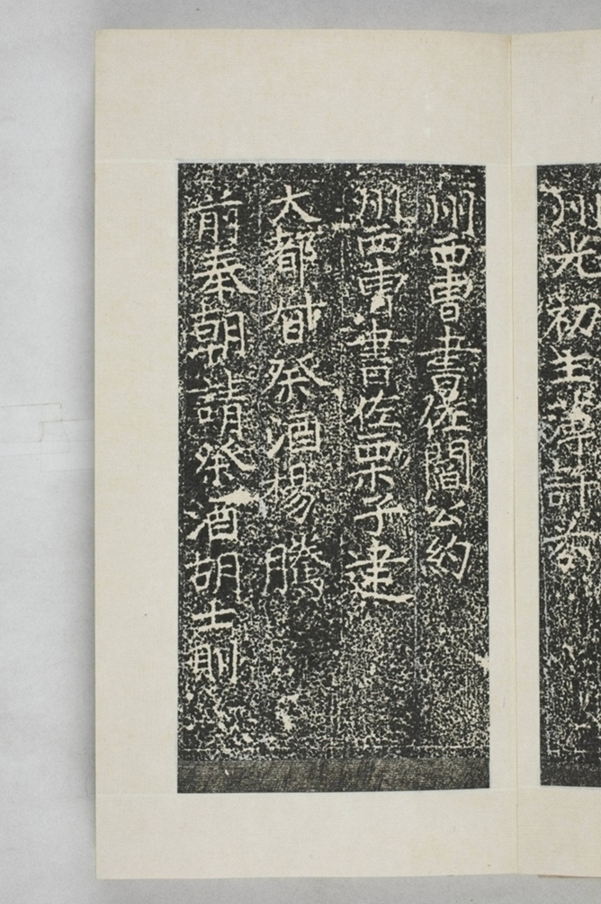 州光初主簿許
州西曹書佐閻公約
州西曹書佐栗子建
大都督祭酒楊騰
前奉朝請祭酒胡士則